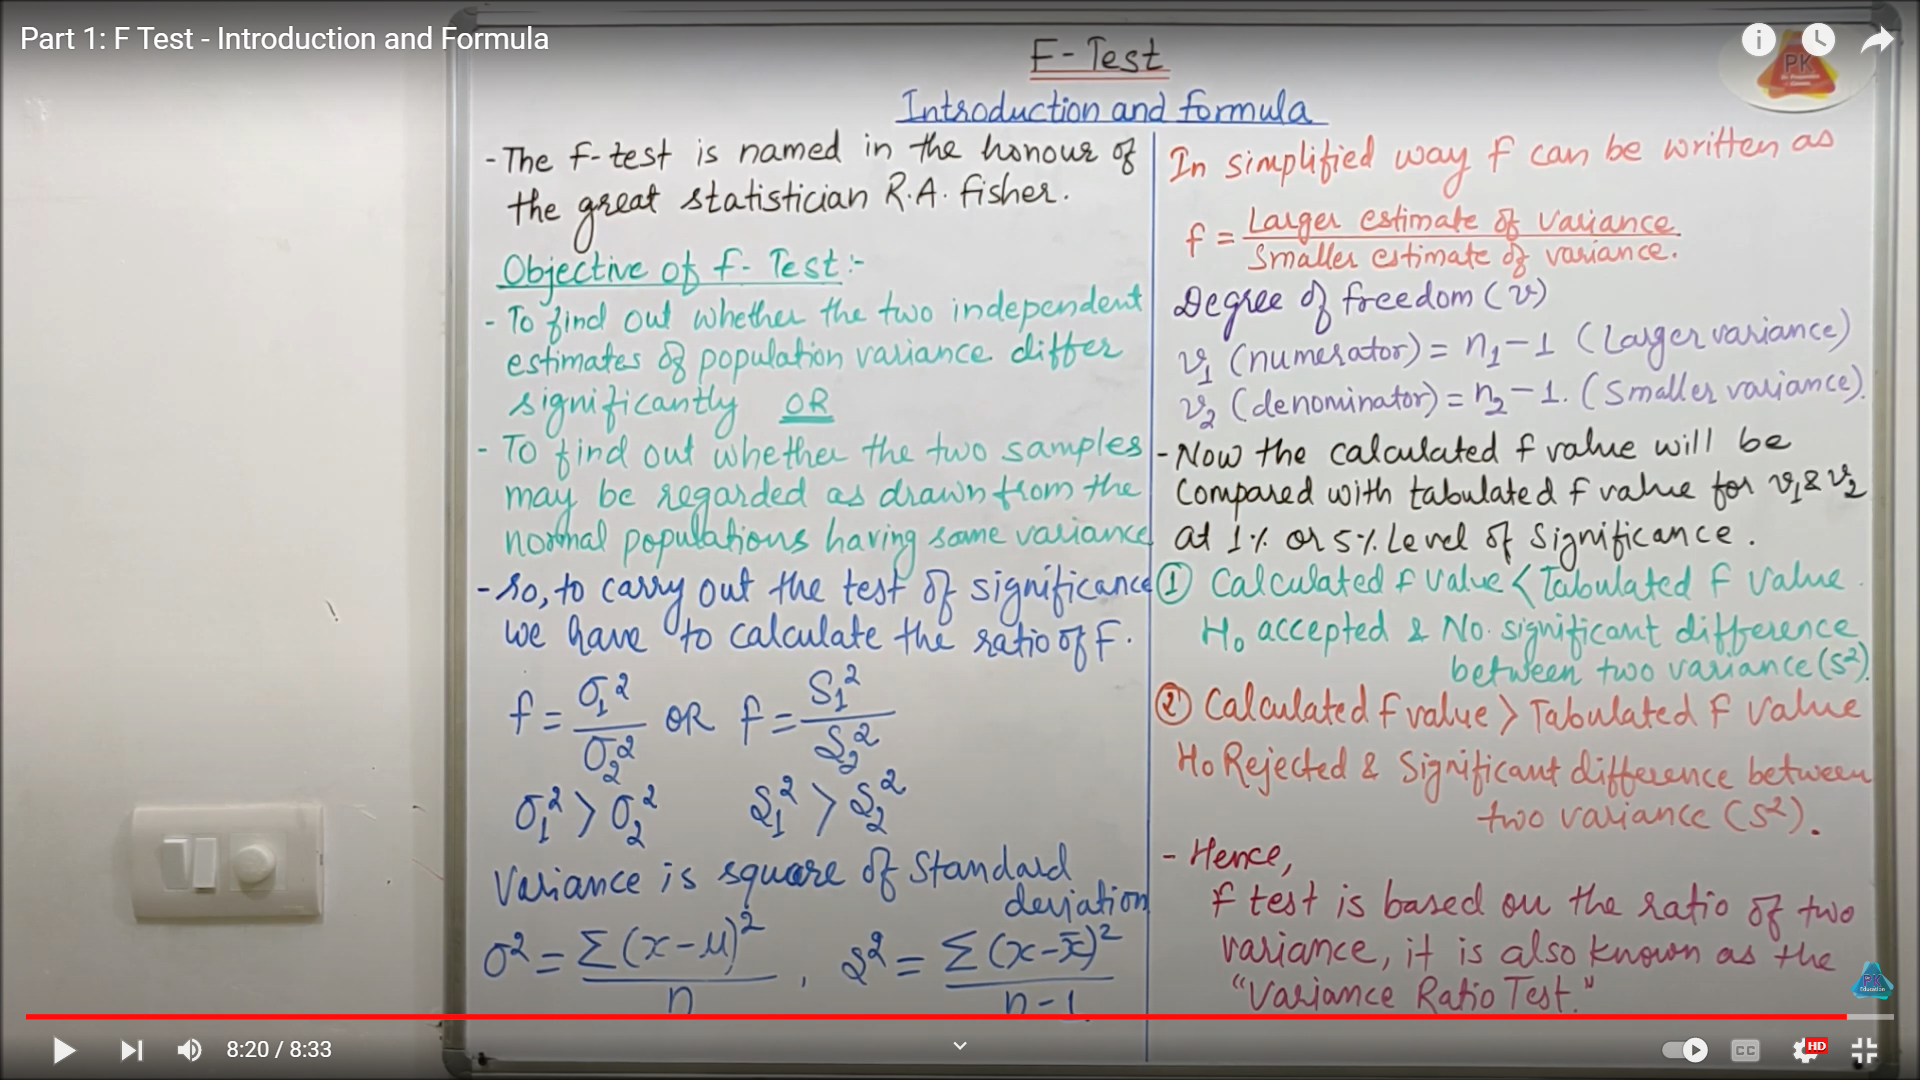 Part 1: F Test - Introduction and Formula
F-Test
Introduction and formula
- The F-test is named in the honour of
the great statistician R.A. fisher.
Objective of f-Test:-
- To find out whether the two independent
estimates of population variance differ
significantly OR
- To find out whether the two samples
may be regarded as drawn from the
normal populations having same variance
- So, to carry out the test of significance
we have to calculate the ratio of F.
f = σ₁²/σ₂² OR f = S₁²/S₂²
σ₁² > σ₂² S₁² > S₂²
Variance is square of Standard
deviation
σ² = Σ(x-μ)²/n , S² = Σ(x-x̄)²/n-1
In simplified way f can be written as
f = Larger estimate of variance
Smaller estimate of variance.
Degree of freedom (v)
v₁ (numerator) = n₁-1 (Larger variance)
v₂ (denominator) = n₂-1. (Smaller variance).
- Now the calculated f value will be
compared with tabulated f value for v₁ & v₂
at 1% or 5% Level of Significance.
① Calculated f value < Tabulated F value.
H₀ accepted & No. significant difference
between two variance (S²).
② Calculated f value > Tabulated F value
H₀ Rejected & Significant difference between
two variance (S²).
- Hence,
F test is based on the ratio of two
variance, it is also known as the
"Variance Ratio Test."
PK
PK
Education
8:20 / 8:33
CC
HD